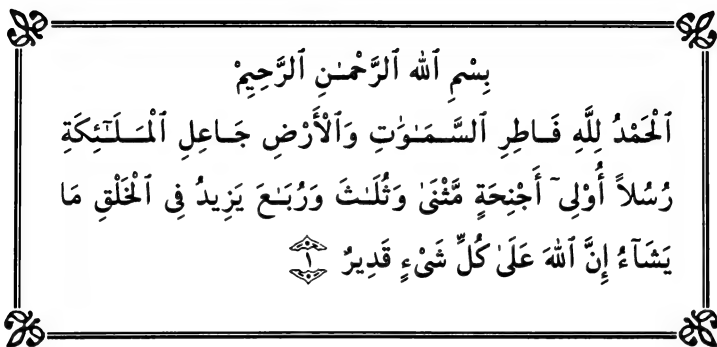 بِسْمِ ٱلله ٱلرَّحْمَـٰنِ ٱلرَّحِيمْ
ٱلْحَمْدُ لِلَّهِ فَـاطِرِ ٱلسَّـمَـٰوَٰتِ وَٱلْأَرْضِ جَـاعِلِ ٱلْمَـلَـٰٓئِكَةِ
رُسُلاً أُوْلِىٓ أَجْنِحَةٍ مَّثْنَىٰ وَثُلَـٰثَ وَرُبَـٰعَ يَزِيدُ فِى ٱلْخَلْقِ مَا
يَشَآءُ إِنَّ ٱللهَ عَلَىٰ كُلِّ شَىْءٍ قَدِيرٌ ١